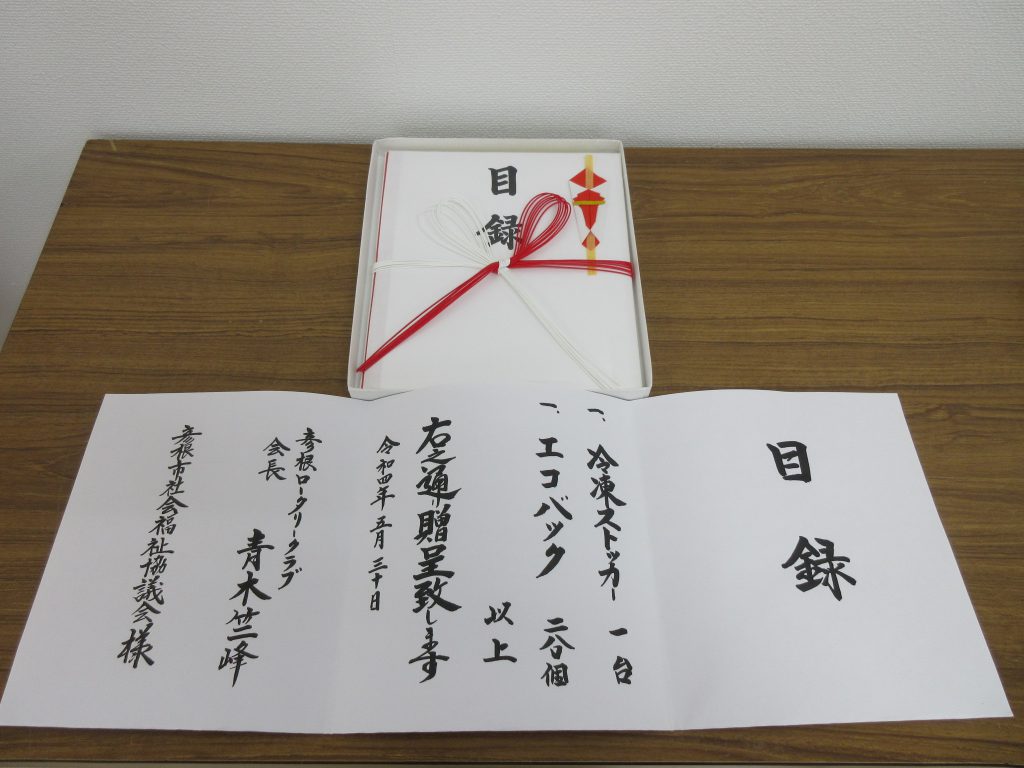 目録
目録
一、冷凍ストッカー 一台
一、エコバック 個
以上
右之通り贈呈致します
令和四年 五月 三十日
彦根ロータリークラブ
会長 青木竺峰
彦根市社会福祉協議会様